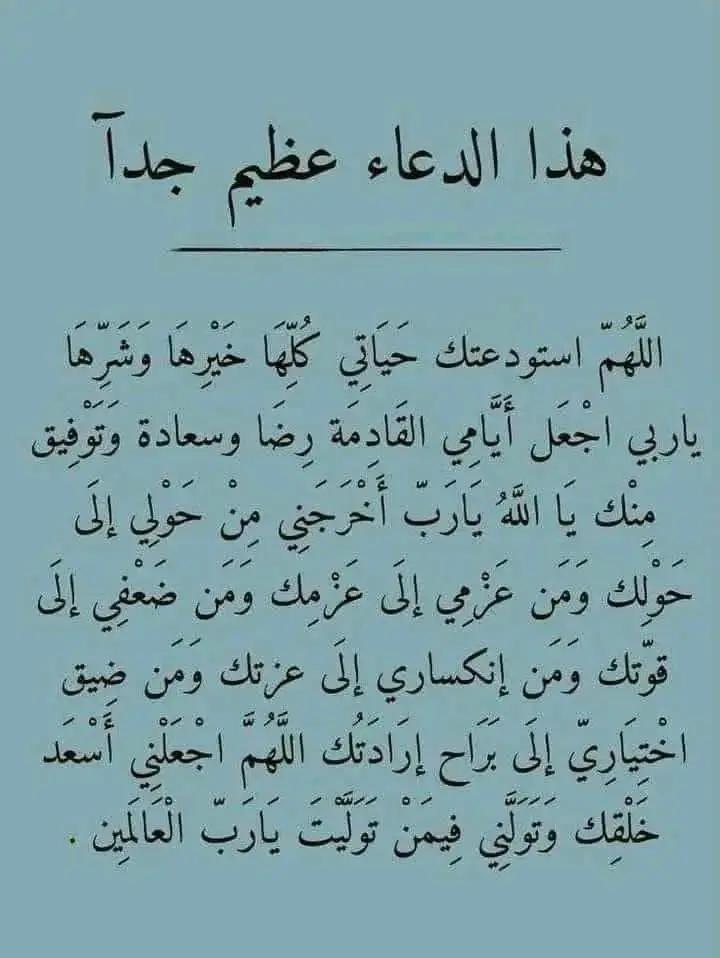 هذا الدعاء عظيم جدآ
اللَّهُمّ استودعتك حَيَاتِي كُلِّهَا خَيْرِهَا وَشَرِّهَا
ياربي اجْعَل أَيَّامِي القَادِمَة رِضَا وسعادة وَتَوْفِيق
مِنْك يَا اللَّهُ يَارَبّ أَخْرَجَنِي مِنْ حَوْلِي إلَى
حَوْلِك وَمَن عَزْمِي إلَى عَزْمِك وَمَن ضَعْفِي إلَى
قوّتك وَمَن إنكساري إلَى عزتك وَمَن ضِيق
اخْتِيَارِيّ إلَى بَرَاح إرَادَتُك اللَّهُمَّ اجْعَلْنِي أَسْعَد
خَلْقِك وَتَوَلَّنِي فِيمَنْ تَوَلَّيْتَ يَارَبّ الْعَالَمِين .